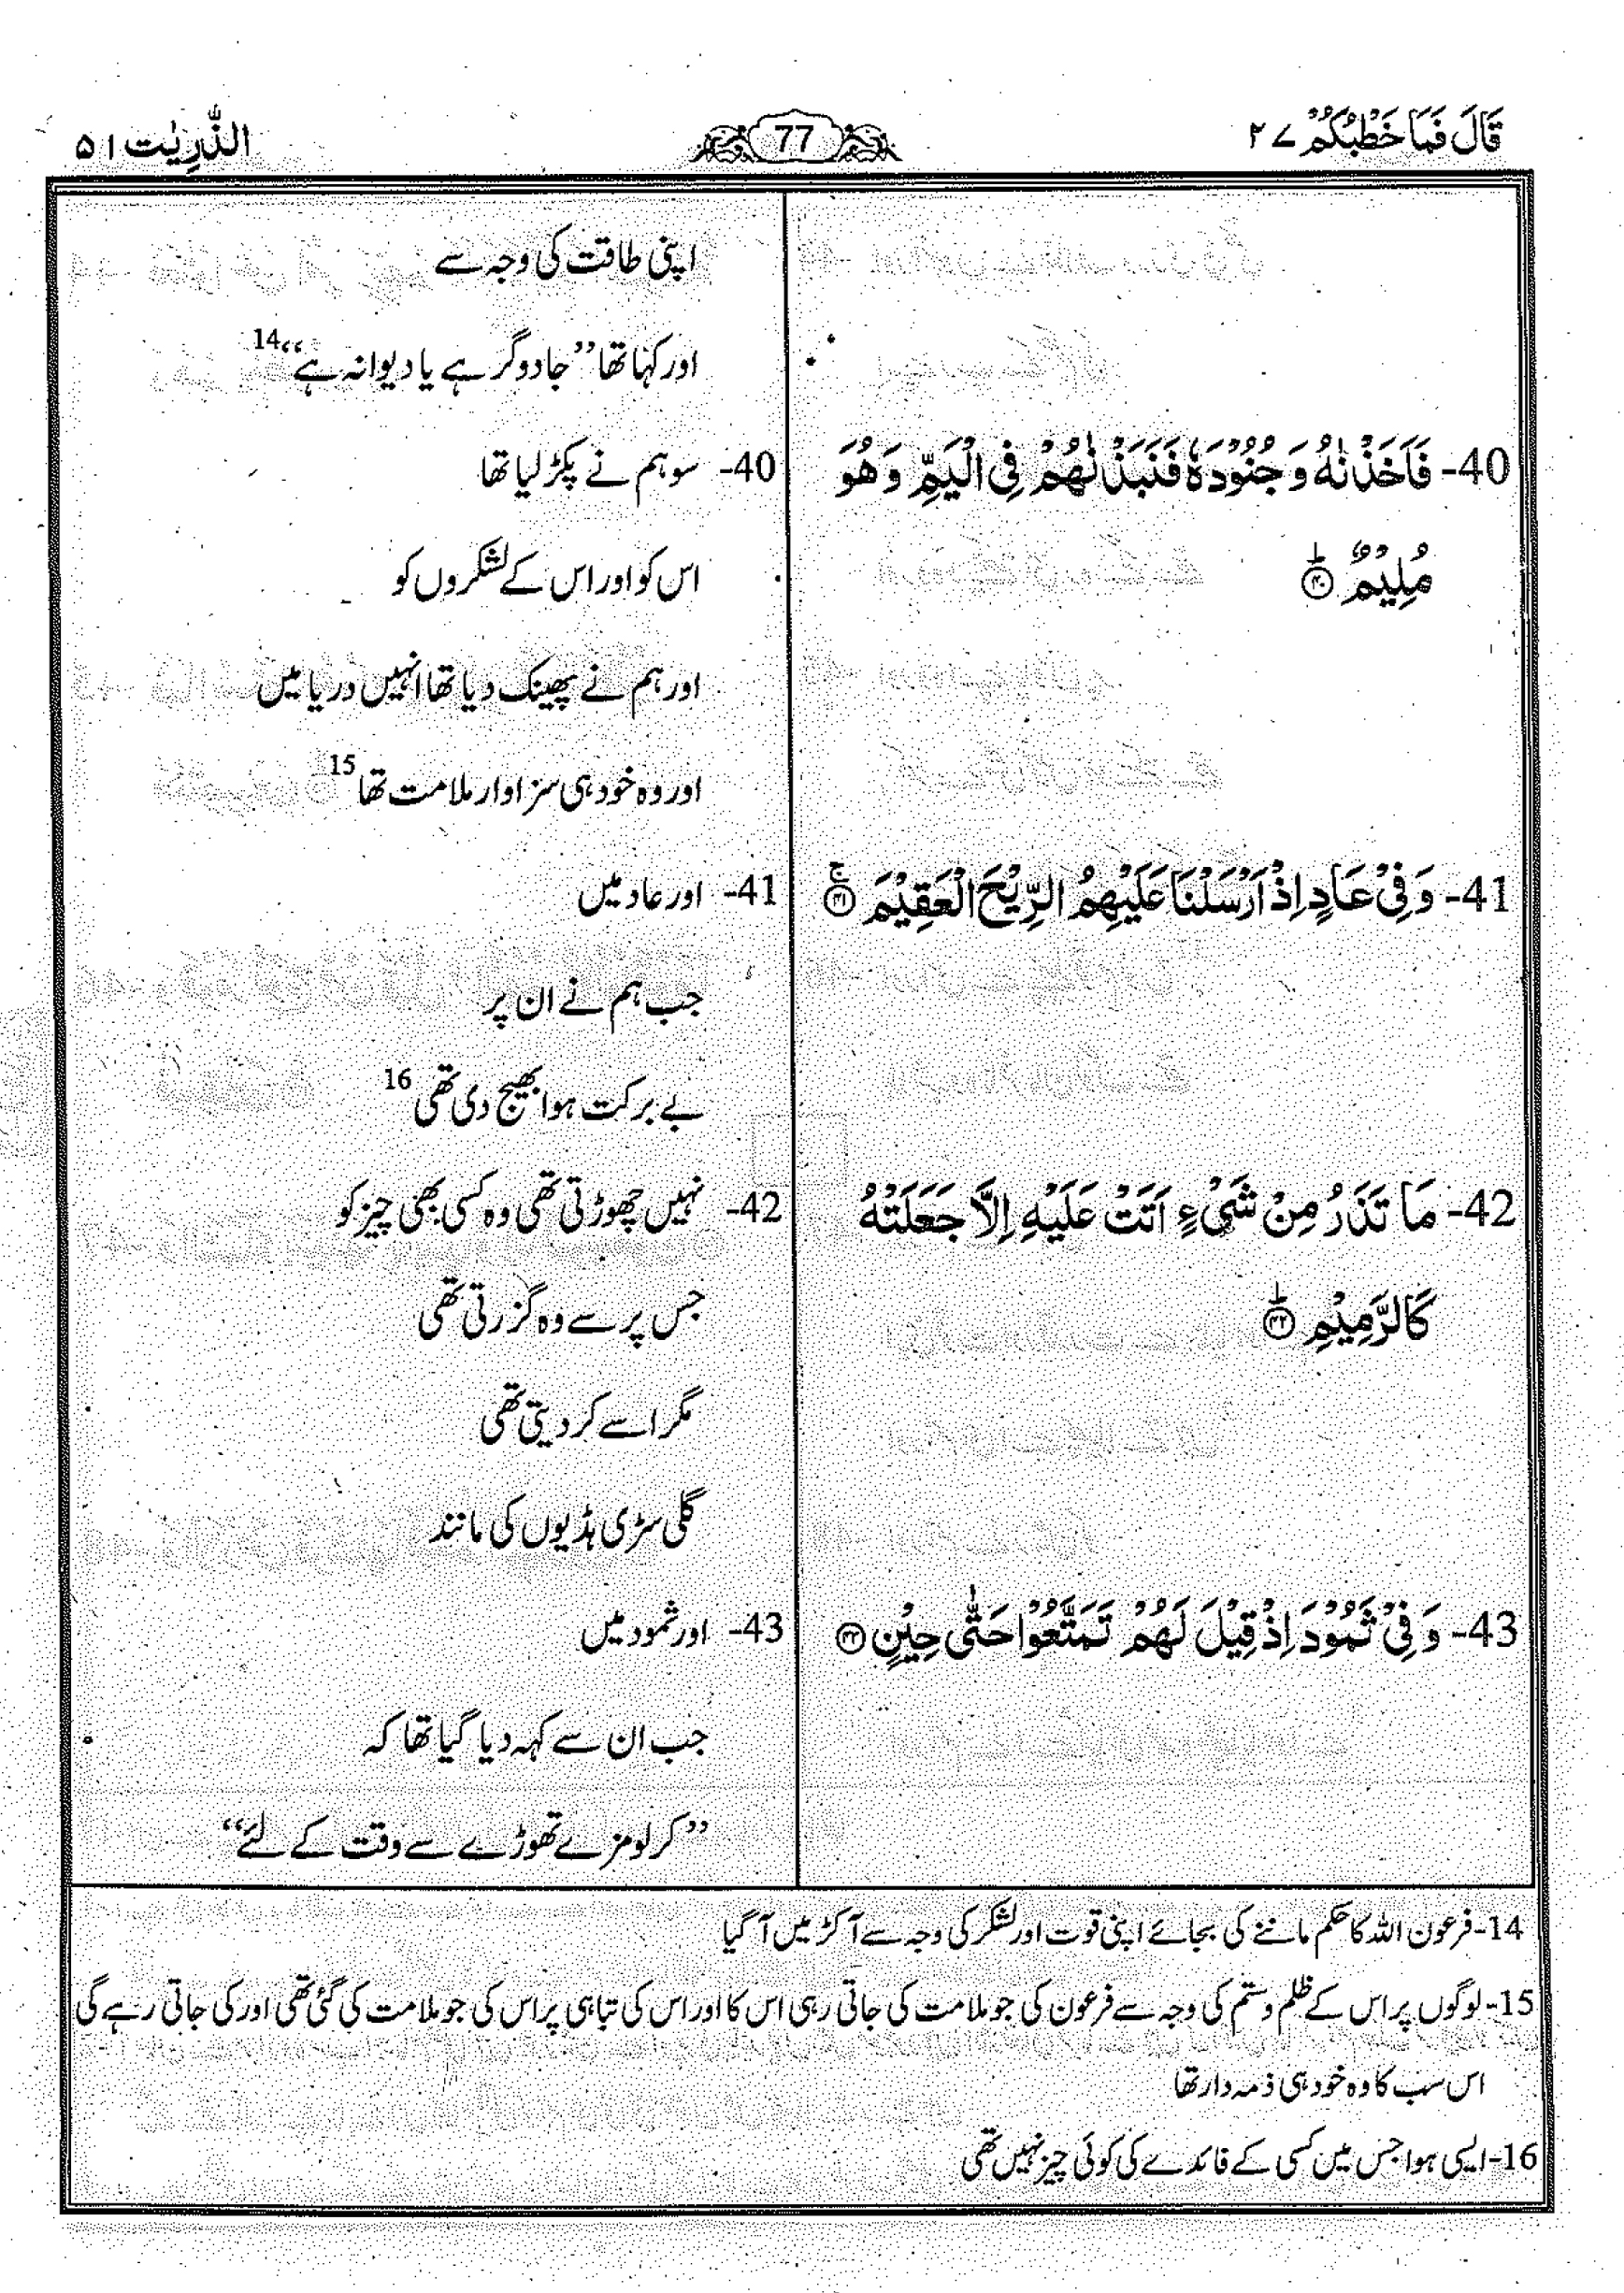 قَالَ فَمَا خَطْبُكُمْ ۲۷
77
الذّٰرِيٰت ۵۱
اپنی طاقت کی وجہ سے
اور کہا تھا ”جادوگر ہے یا دیوانہ ہے“ 14
40- فَاَخَذْنٰهُ وَ جُنُوْدَهٗ فَنَبَذْنٰهُمْ فِی الْیَمِّ وَ هُوَ
مُلِیْمٌ ؕ۴۰
40- سو ہم نے پکڑ لیا تھا
اس کو اور اس کے لشکروں کو
اور ہم نے پھینک دیا تھا انہیں دریا میں
اور وہ خود ہی سزاوار ملامت تھا 15
41- وَ فِیْ عَادٍ اِذْ اَرْسَلْنَا عَلَیْهِمُ الرِّیْحَ الْعَقِیْمَ ۚ۴۱
41- اور عاد میں
جب ہم نے ان پر
بے برکت ہوا بھیج دی تھی 16
42- مَا تَذَرُ مِنْ شَیْءٍ اَتَتْ عَلَیْهِ اِلَّا جَعَلَتْهُ
كَالرَّمِیْمِ ؕ۴۲
42- نہیں چھوڑتی تھی وہ کسی بھی چیز کو
جس پر سے وہ گزرتی تھی
مگر اسے کر دیتی تھی
گلی سڑی ہڈیوں کی مانند
43- وَ فِیْ ثَمُوْدَ اِذْ قِیْلَ لَهُمْ تَمَتَّعُوْا حَتّٰی حِیْنٍ ۴۳
43- اور ثمود میں
جب ان سے کہہ دیا گیا تھا کہ
”کر لو مزے تھوڑے سے وقت کے لئے“
14- فرعون اللہ کا حکم ماننے کی بجائے اپنی قوت اور لشکر کی وجہ سے آکڑ میں آ گیا
15- لوگوں پر اس کے ظلم و ستم کی وجہ سے فرعون کی جو ملامت کی جاتی رہی اس کا اور اس کی تباہی پر اس کی جو ملامت کی گئی تھی اور کی جاتی رہے گی
اس سب کا وہ خود ہی ذمہ دار تھا
16- ایسی ہوا جس میں کسی کے فائدے کی کوئی چیز نہیں تھی